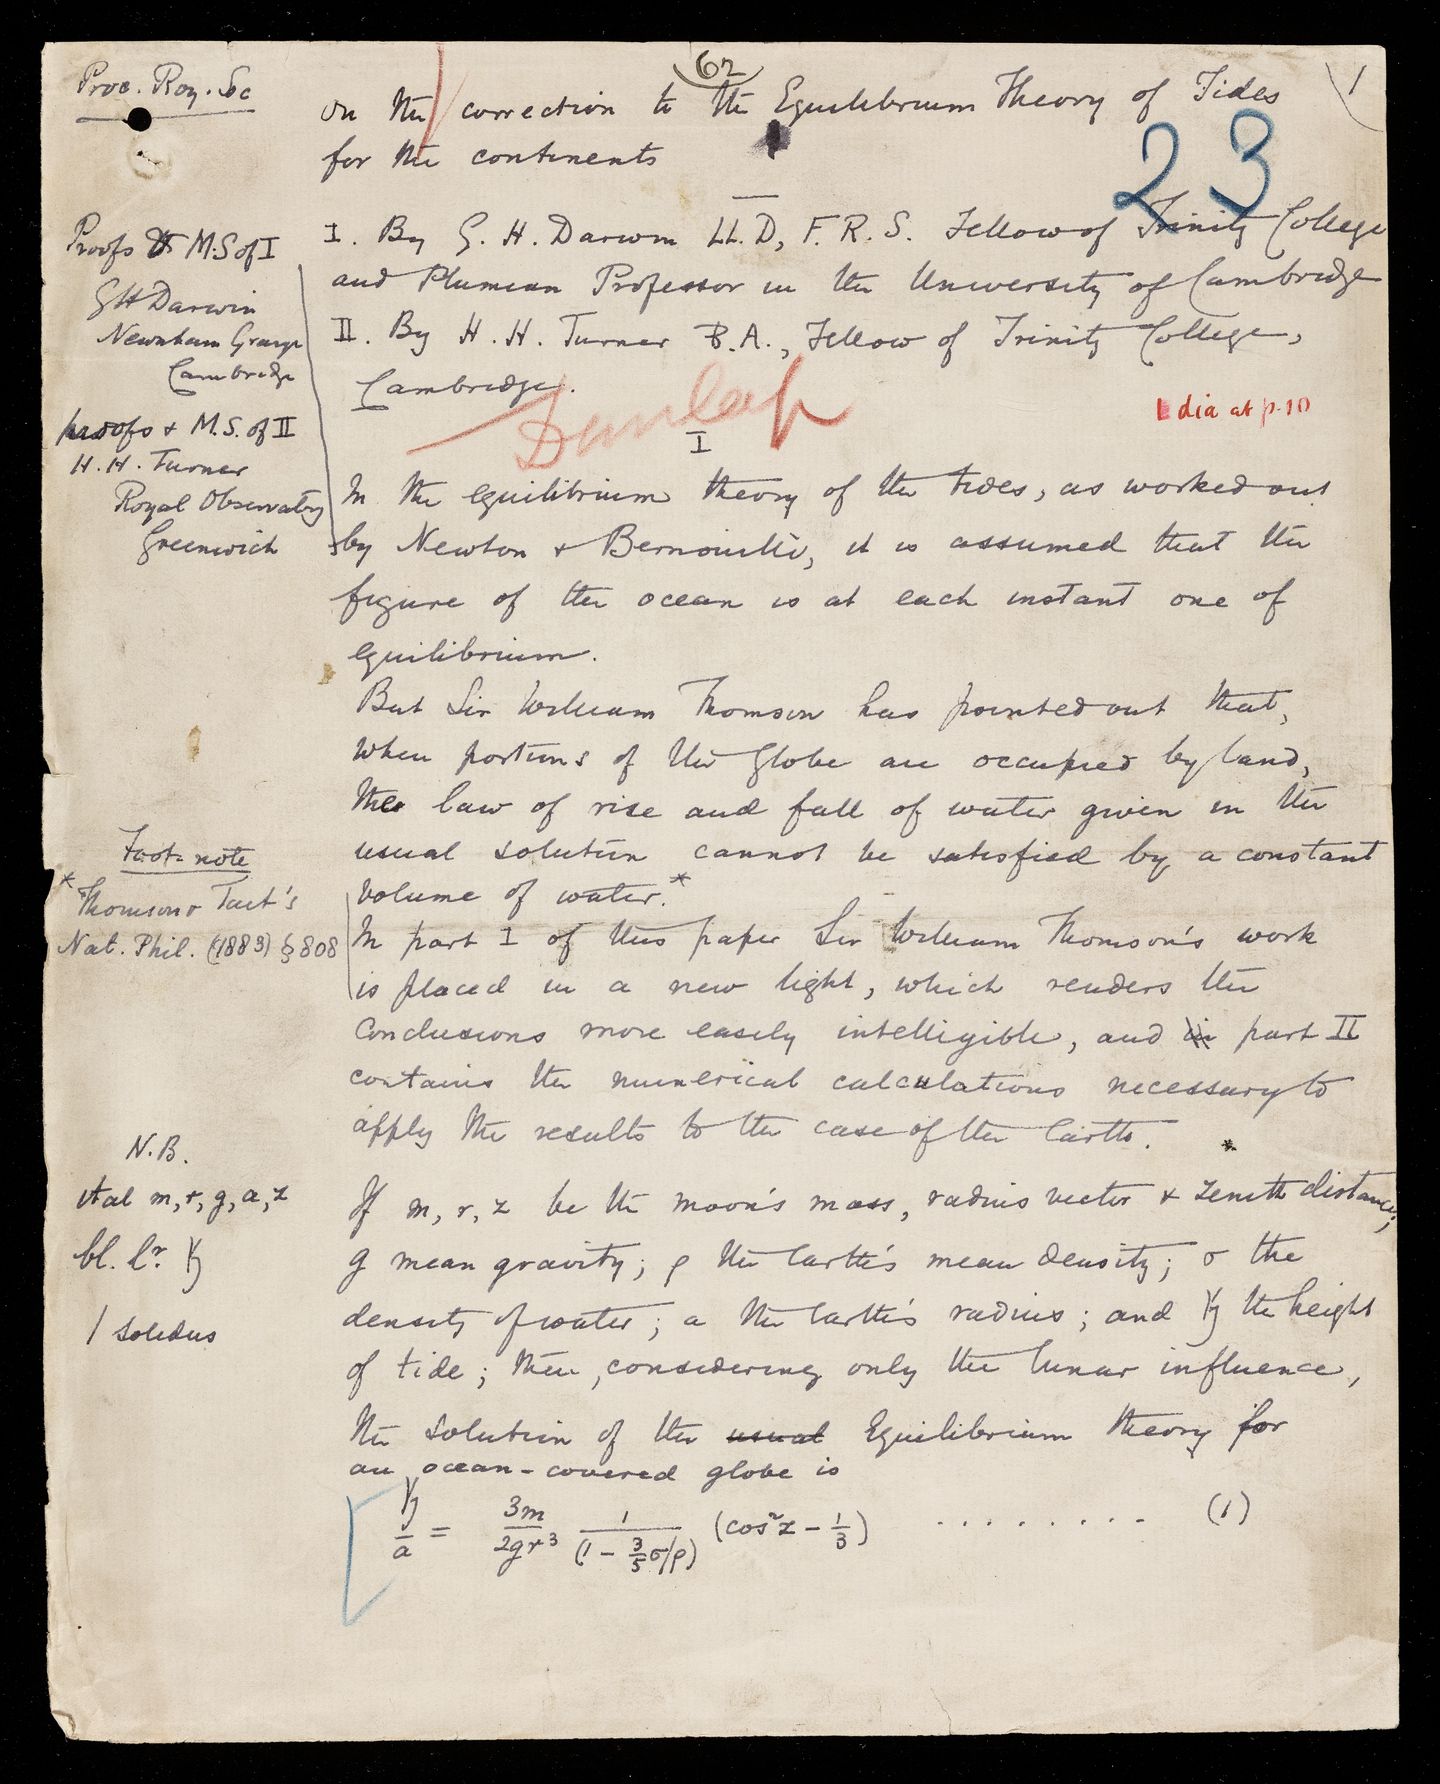 62
1
Proc. Roy. Soc
On the correction to the Equilibrium Theory of Tides
for the continents
23
I. By G. H. Darwin LL.D, F.R.S. Fellow of Trinity College
and Plumian Professor in the University of Cambridge
II. By H. H. Turner B.A., Fellow of Trinity College,
Cambridge.
Proofs & M.S of I
G H Darwin
Newnham Grange
Cambridge
proofs & M.S. of II
H. H. Turner
Royal Observatory
Greenwich
Dunlap
1 dia at p.10
I
In the equilibrium theory of the tides, as worked out
by Newton & Bernouilli, it is assumed that the
figure of the ocean is at each instant one of
equilibrium.
But Sir William Thomson has pointed out that,
when portions of the globe are occupied by land,
the law of rise and fall of water given in the
usual solution cannot be satisfied by a constant
volume of water.*
Foot-note
* Thomson & Tait's
Nat. Phil. (1883) § 808
In part I of this paper Sir William Thomson's work
is placed in a new light, which renders the
conclusions more easily intelligible, and in part II
contains the numerical calculations necessary to
apply the results to the case of the Earth.
N.B.
ital m, r, g, a, z
bl. lr. 𝔥
/ solidus
If m, r, z be the moon's mass, radius vector & zenith distance;
g mean gravity; ρ the Earth's mean density; σ the
density of water; a the Earth's radius; and 𝔥 the height
of tide; then, considering only the lunar influence,
the solution of the usual Equilibrium theory for
an ocean-covered globe is
𝔥/a = 3m/2gr³ 1/(1 − 3/5 σ/ρ) (cos² z − 1/3) ......... (1)